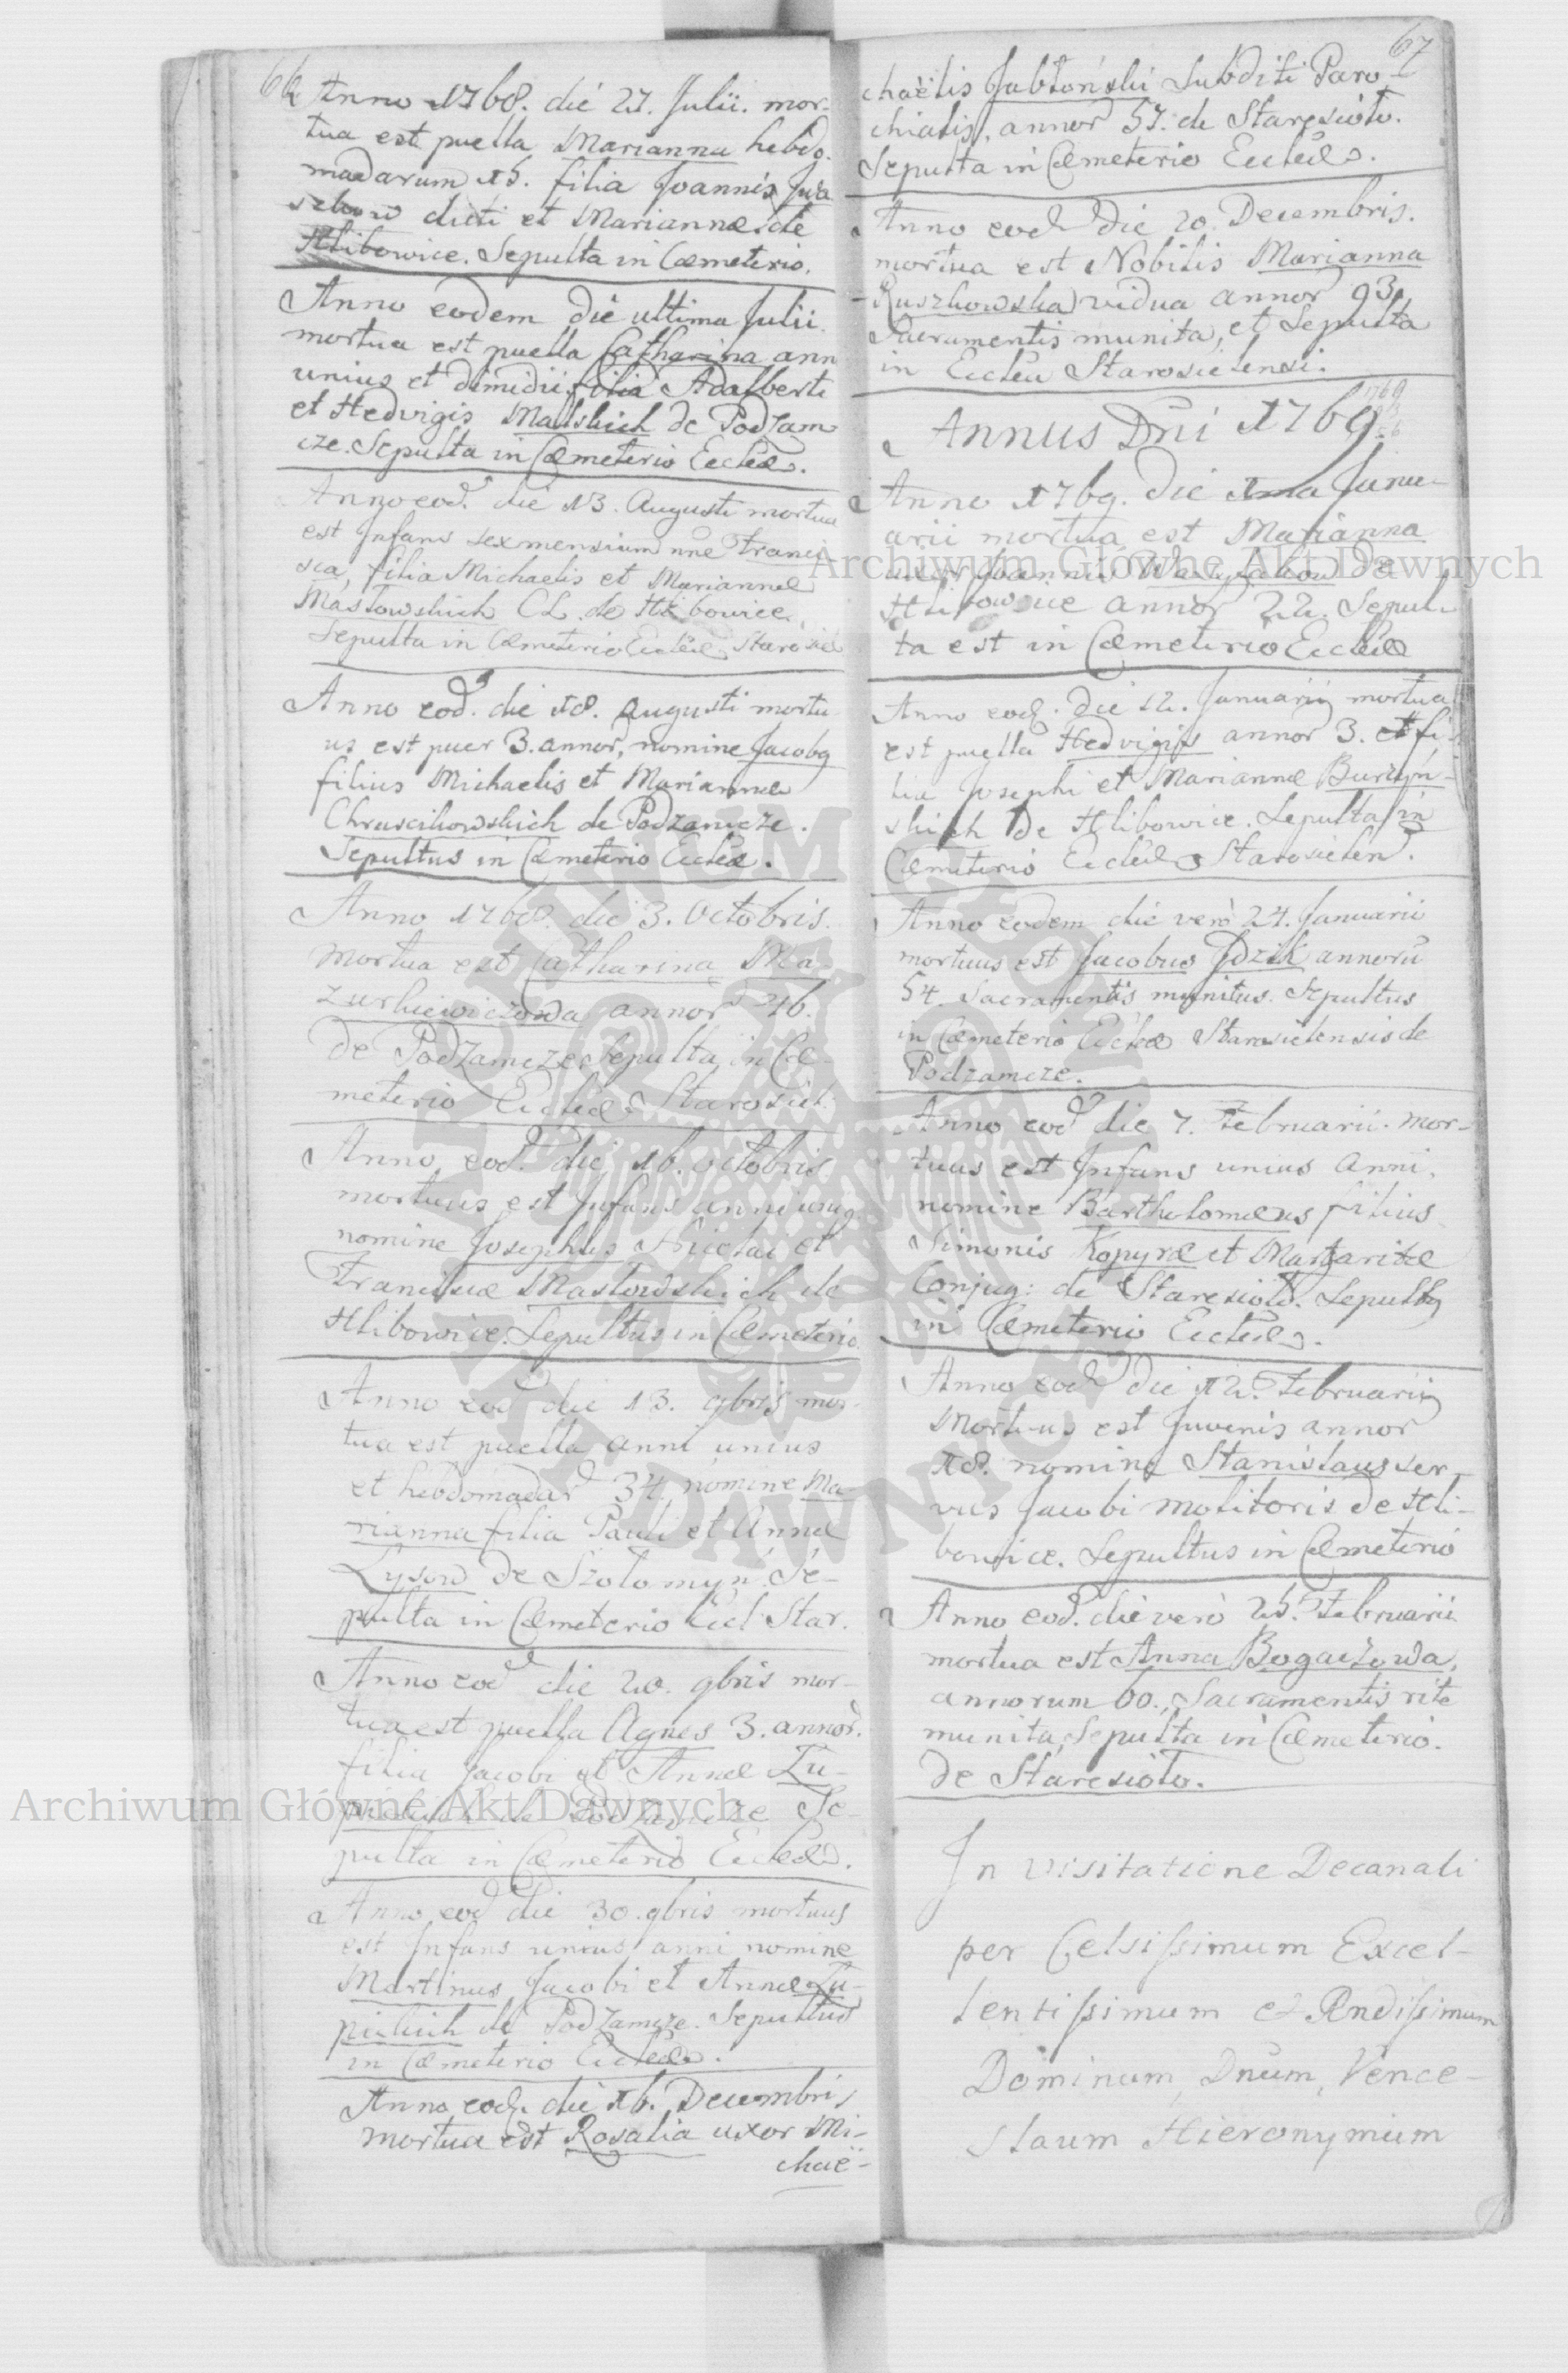 66
Anno 1768. die 27. Julii. mor-
tua est puella Marianna hebdo-
madarum 15. filia Joannis
dicti et Mariannæ de
Hlibowice. Sepulta in Cæmeterio.
Anno eodem die ultima Julii
mortua est puella Catharina ann
unius et dimidii filia Adalberti
et Hedvigis de Podzam
cze. Sepulta in Cæmeterio Eccleæ.
Anno eod. die 13. Augusti mortua
est Infans sex mensium nne Franci-
sca, filia Michaelis et Mariannæ
Masłowskich CL. de Hlibowice.
Sepulta in Cæmeterio Eccleæ Starosiel
Anno eod. die 18. Augusti mortu
us est puer 3. annor, nomine Jacobg
filius Michaelis et Mariannæ
Chruscikowskich de Podzamcze.
Sepultus in Cæmeterio Eccleæ.
Anno 1768. die 3. Octobris.
Mortua est Catharina Ma-
zurkiewiczowa annor 46.
de Podzamcze Sepulta in Cæ-
meterio Eccleæ Starosiel.
Anno eod. die 16. Octobris
mortuus est Infans anni unig
nomine Josephus Nicolai et
Franciscæ Masłowskich de
Hlibowice. Sepultus in Cæmeterio
Anno eod die 13. 9bris mor-
tua est puella anni unius
et hebdomadar 34, nomine Ma-
rianna filia Pauli et Annæ
Lysow de Szołomyn. Se-
pulta in Cæmeterio Eccl Star.
Anno eod die 20. 9bris mor-
tua est puella Agnes 3. annor.
filia Jacobi et Annæ
de Podzamcze Se-
pulta in Cæmeterio Eccleæ.
Anno eod die 30. 9bris mortuus
est Infans unius anni nomine
Martinus Jacobi et Annæ
de Podzamcze. Sepultus
in Cæmeterio Eccleæ.
Anno eod. die 16. Decembris
mortua est Rosalia uxor Mi-
chaë-
67
chaëlis Jabłoński Subditi Paro-
chialis, annor 57. de Staresioło.
Sepulta in Cæmeterio Eccleæ.
Anno eod die 20. Decembris.
mortua est Nobilis Marianna
Ruszkowska vidua annor 93,
Sacramentis munita, et Sepulta
in Ecclea Starosielensi.
Annus Dni 1769.
Anno 1769. die 1ma Janu-
arii mortua est Marianna
uxor Joannis de
Hlibowice annor 22. Sepul-
ta est in Cæmeterio Eccleæ
Anno eod. die 12. Januarii mortua
est puella Hedvigis annor 3. et fi-
lia Josephi et Mariannæ Burzyń-
skich de Hlibowice. Sepulta in
Cæmeterio Eccleæ Starosielen.
Anno eodem die verò 24. Januarii
mortuus est Jacobus Jdzik annorū
54. Sacramentis munitus. Sepultus
in Cæmeterio Eccleæ Starosielensis de
Podzamcze.
Anno eod die 7. Februarii. mor-
tuus est Infans unius anni,
nomine Bartholomæus filius
Simonis Kopyræ et Margaritæ
Conjug: de Staresioło. Sepultg
in Cæmeterio Eccleæ.
Anno eod die 12. Februarii
Mortuus est Juvenis annor
18. nomine Stanislaus ser-
vus Jacobi Molitoris de Hli-
bowice. Sepultus in Cæmeterio
Anno eod. die verò 25. Februarii
mortua est Anna Bogaczowa,
annorum 60., Sacramentis rite
munita, Sepulta in Cæmeterio.
de Staresioło.
In visitatione Decanali
per Celsissimum Excel-
lentissimum & Rndissimum
Dominum, Dnum, Vence-
slaum Hieronymum
Archiwum Główne Akt Dawnych
Archiwum Główne Akt Dawnych
ARCHIWUM GŁÓWNE AKT DAWNYCH